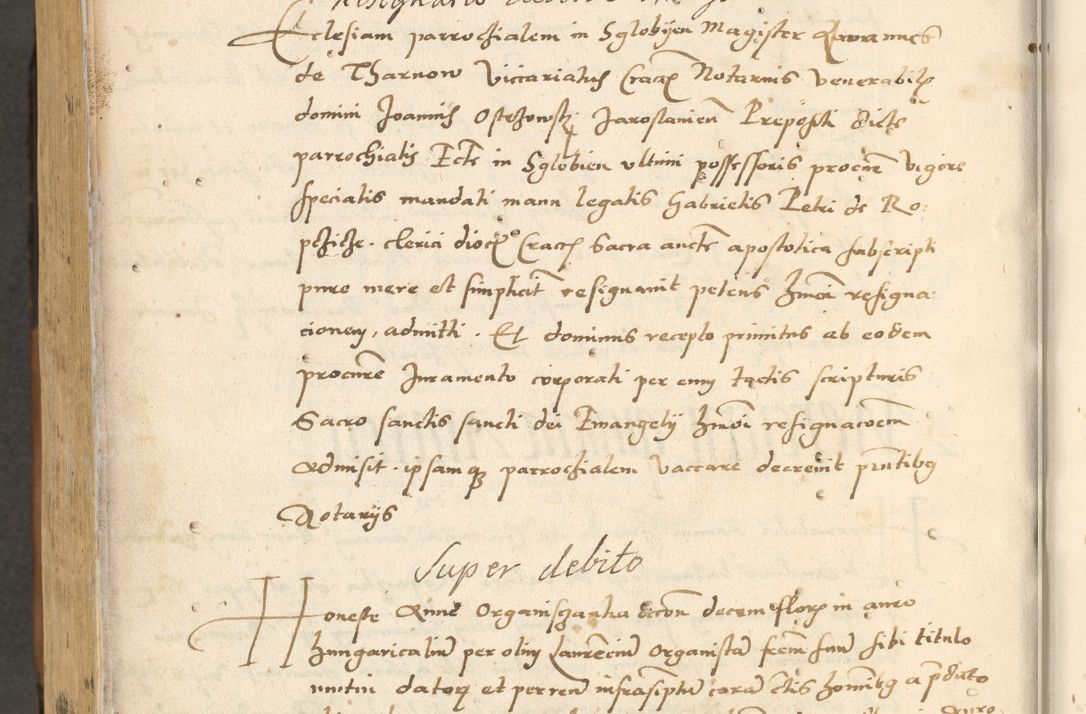 Ecclesiam parrochialem in Sglobyen Magister Ioannes
de Tharnow Viccariatus Craco Notarius Venerabilis
domini Joannis Ostrowski Jaroslamien Prepositi dicte
parrochialis Eccle in Sglobien ultimi possessoris procur vigore
specialis mandati manu legalis Gabrielis Petri de Ro:
pczicze. clerici dioc Craco Sacra aucte apostolica subscripti
pure mere et simplicit resignavit petens hmoi resigna:
cionem, admitti. Et dominus recepto primitus ab eodem
procure Juramento corporali per eum tactis scripturis
Sacro sanctis sancti dei Ewangelij hmoi resignacoem
admisit. ipsamq parrochialem vaccare decrevit pntibq
Notarijs
Super debito
Honeste Anne Organisczanka decem flor in auro
hungaricaliu per olim Laurenciu Organista frem suu sibi titulo
mutui datoru et per eum infrascriptu cora ctis hominibq a pdicto